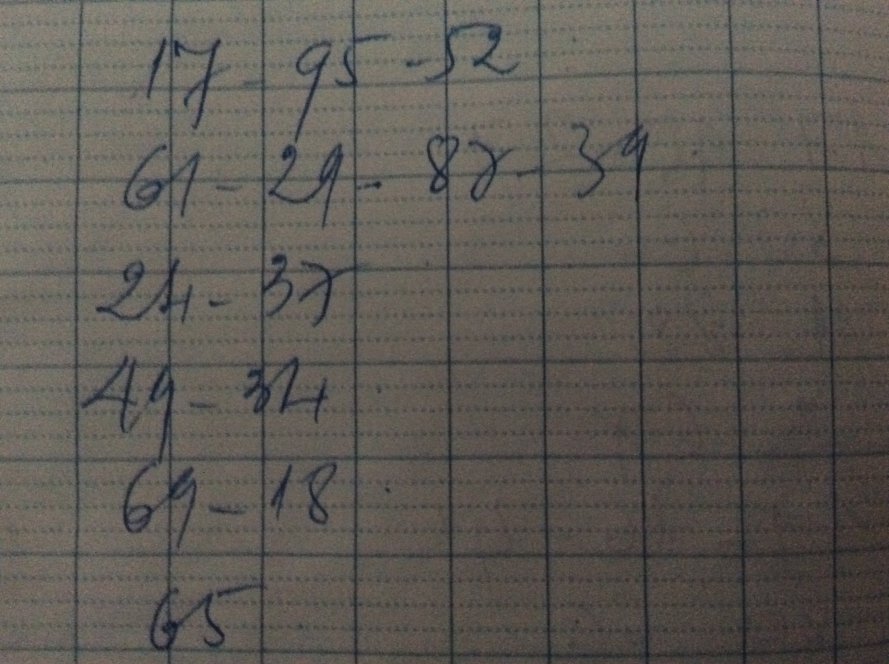 17 - 95 - 52
61 - 29 - 87 - 39
24 - 37
49 - 34
69 - 18
65